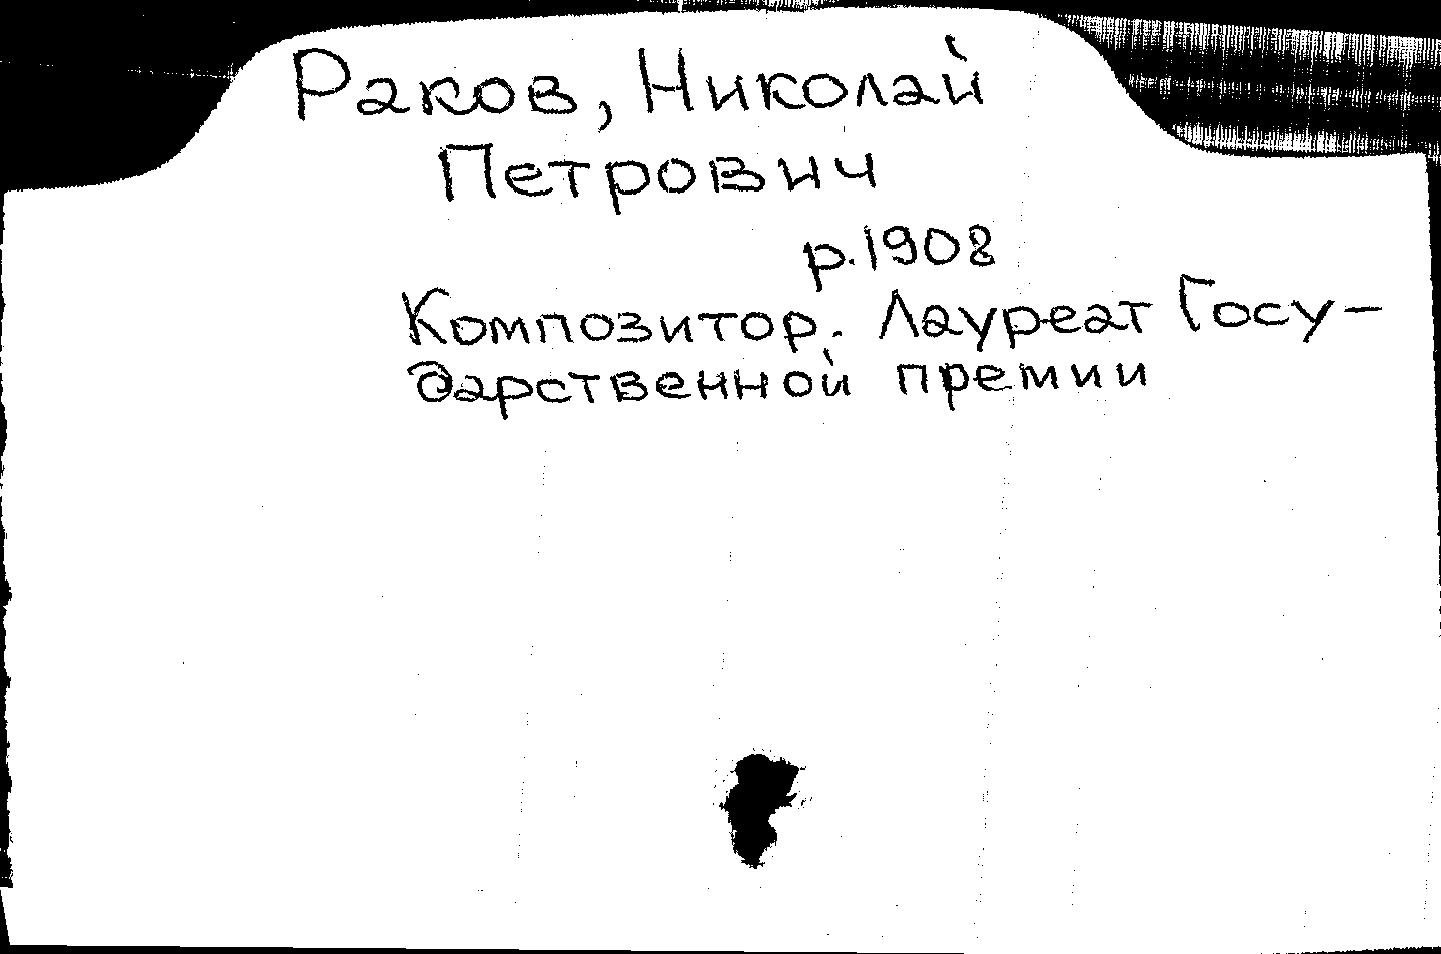 Раков, Николай
Петрович
р.1908
Композитор. Лауреат Госу-
дарственной премии